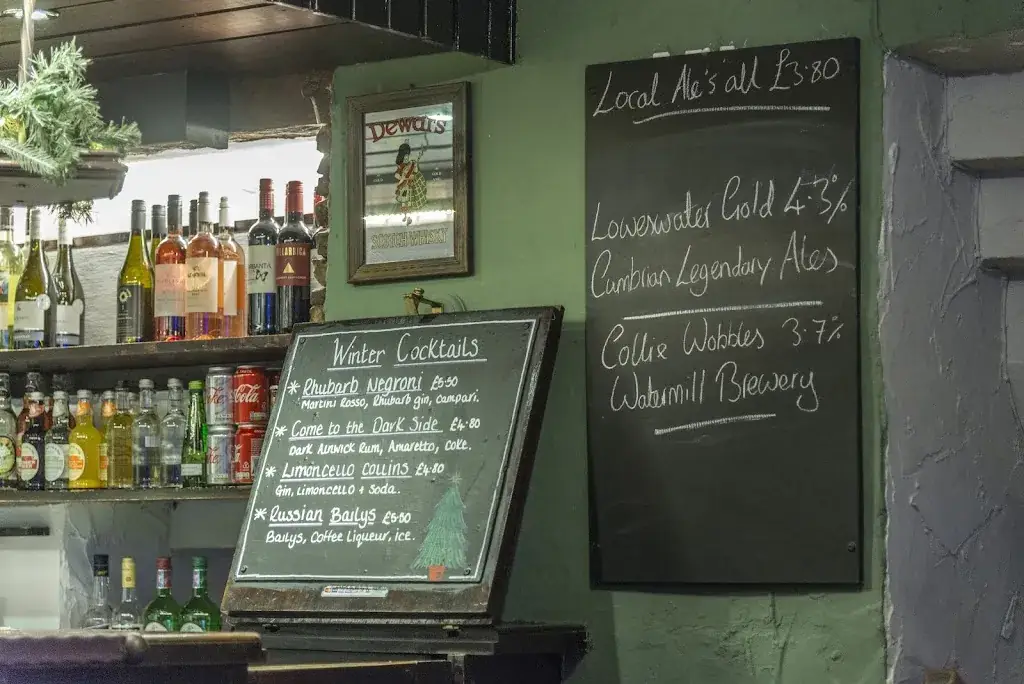 Dewar's
SCOTCH WHISKY
Local Ale's all £3.80
Loweswater Gold 4.3%
Cumbrian Legendary Ales
Collie Wobbles 3.7%
Watermill Brewery
Winter Cocktails
* Rhubarb Negroni £5.50
Martini Rosso, Rhubarb gin, Campari.
* Come to the Dark Side £4.80
Dark Alnwick Rum, Amaretto, Coke.
* Limoncello Collins £4.80
Gin, Limoncello + Soda.
* Russian Bailys £5.50
Bailys, Coffee Liqueur, ice.
Coca-Cola